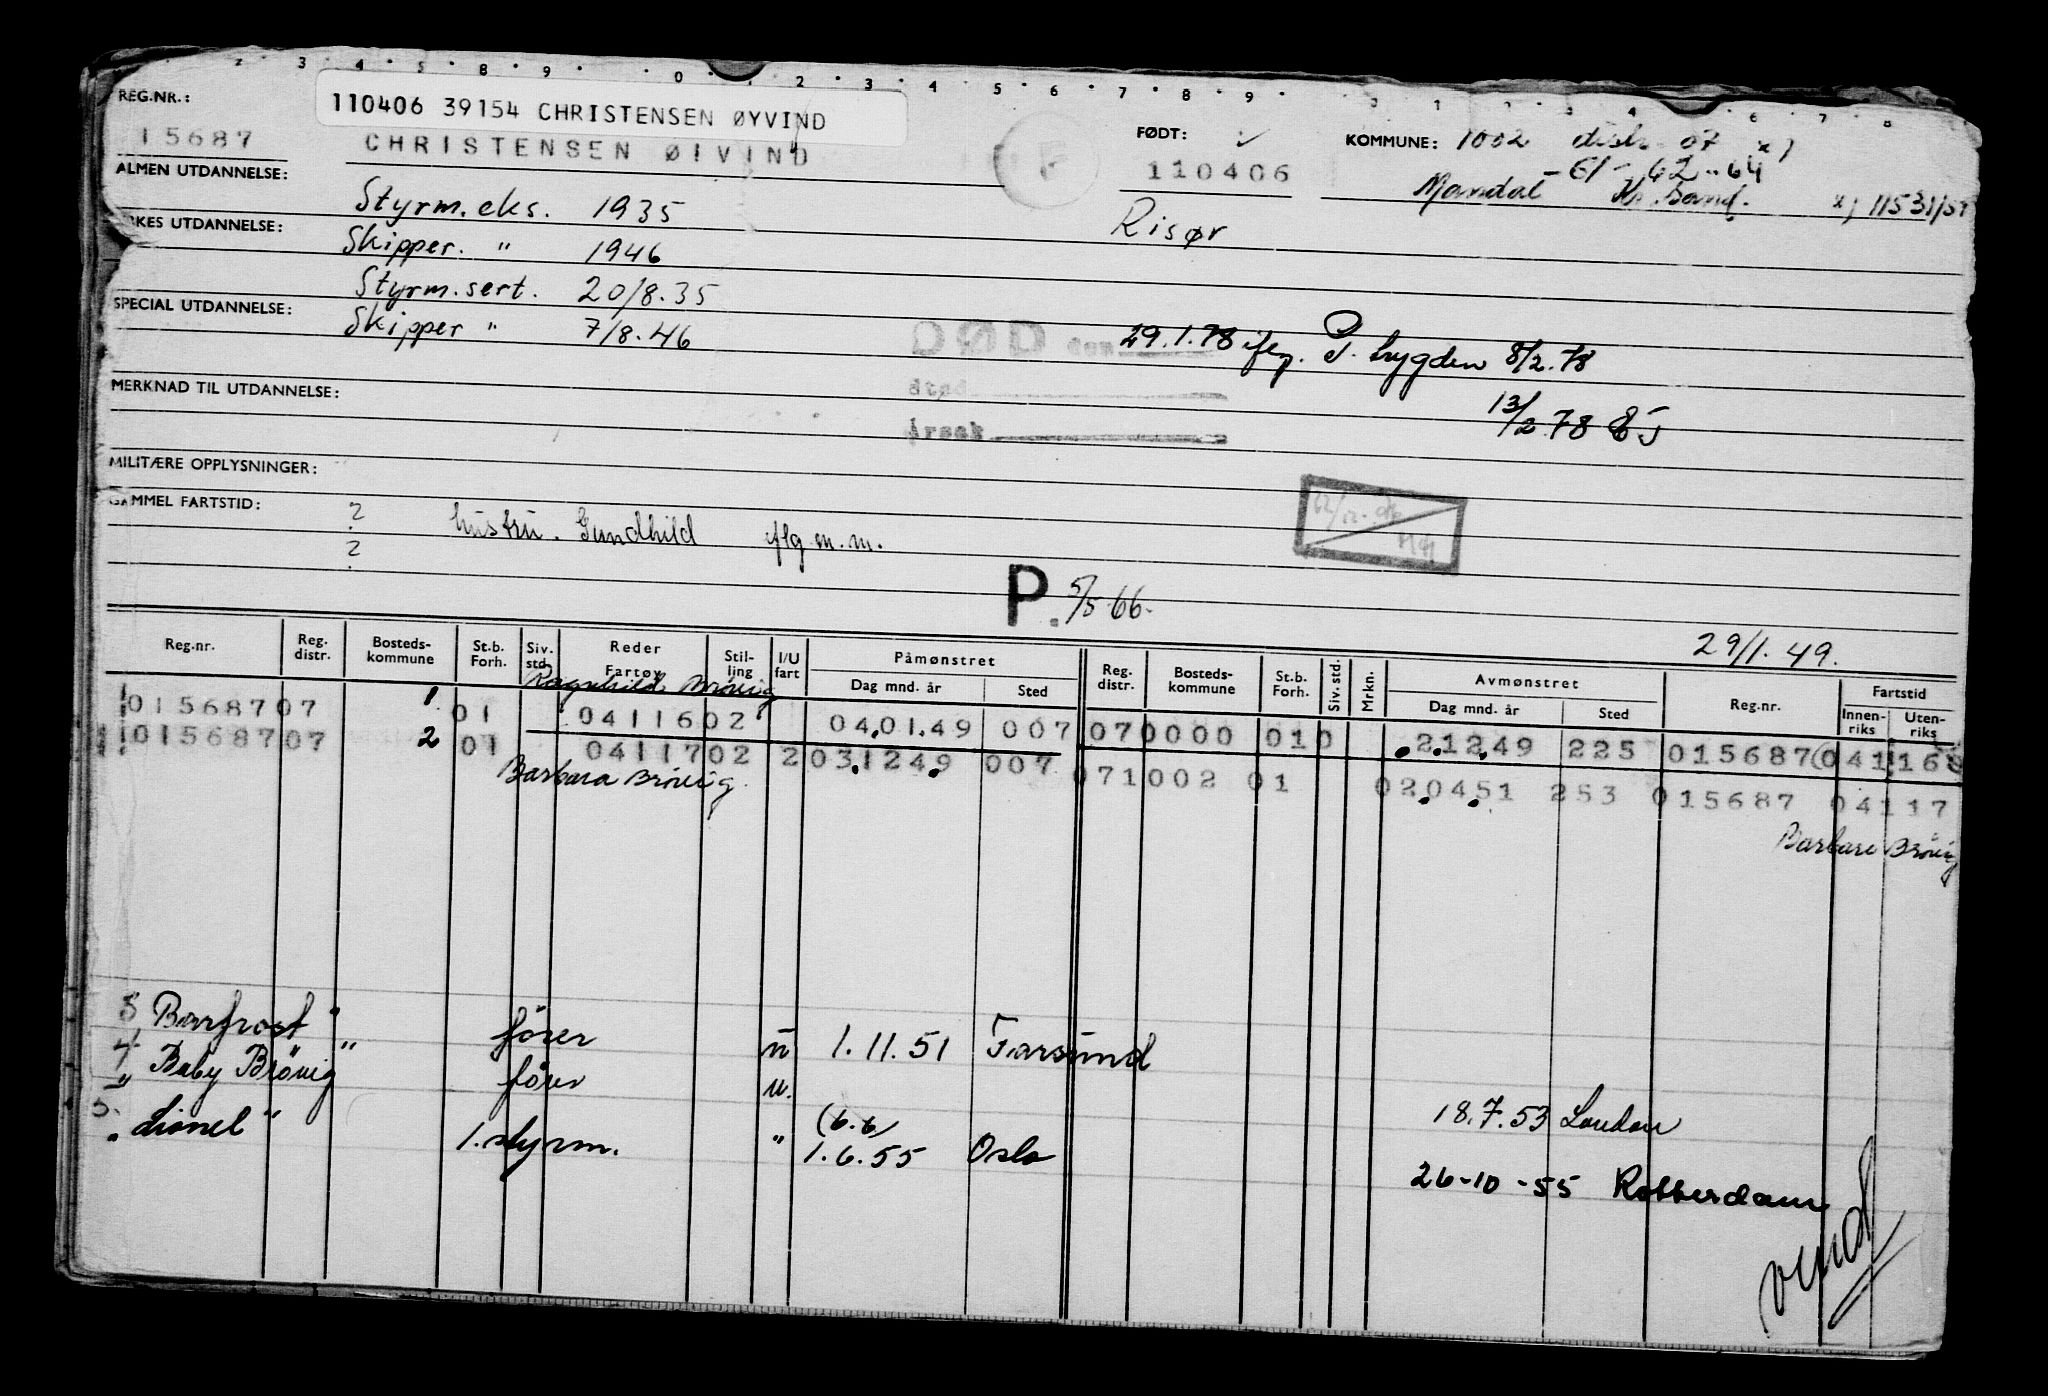 2 3 4 5 8 9 0 1 2 3 4 5 6 7 8 9 0 1 2 3 4 6 7 8
REG.NR.: 110406 39154 CHRISTENSEN ØYVIND
15687 CHRISTENSEN ØIVIND FØDT: 110406 KOMMUNE: 1002 distr. 07 x)
-61-62-64
Mandal Kr.sand. x) 11531/57
ALMEN UTDANNELSE: Styrm.eks. 1935 Risør
YRKES UTDANNELSE: Skipper. " 1946
Styrm.sert. 20/8.35
SPECIAL UTDANNELSE: Skipper " 7/8.46
DØD den 29.1.78 iflg. P. trygden 8/2.78
sted
MERKNAD TIL UTDANNELSE: 13/2.78
årsak
MILITÆRE OPPLYSNINGER:
GAMMEL FARTSTID: ? hustru. Gundhild iflg m.m.
?
P. 5/5-66.
29/1.49.
Reg.nr. Reg. distr. Bosteds-kommune St.b. Forh. Siv. std. Reder Fartøy Stil-ling I/U fart Påmønstret Dag mnd. år Sted Reg. distr. Bosteds-kommune St.b. Forh. Siv. std. Mrkn. Avmønstret Dag mnd. år Sted Reg.nr. Fartstid Innen-riks Uten-riks
Ragnhild Brövig
015687 07 1 01 04116 02 04.01.49 007 07 0000 01 0 .2.12.49 225 015687 04116
015687 07 2 01 04117 02 2 03.12.49 007 07 1002 01 02.04.51 253 015687 04117
Barbara Brövig Barbara Brövig
3 "Barfrost" förer u 1.11.51 Farsund
4 "Baby Brövig" förer u. 18.7.53 London
5. "Lionel" 1.styrm. " (6.6) 1.6.55 Oslo 26-10-55 Rotterdam
vend